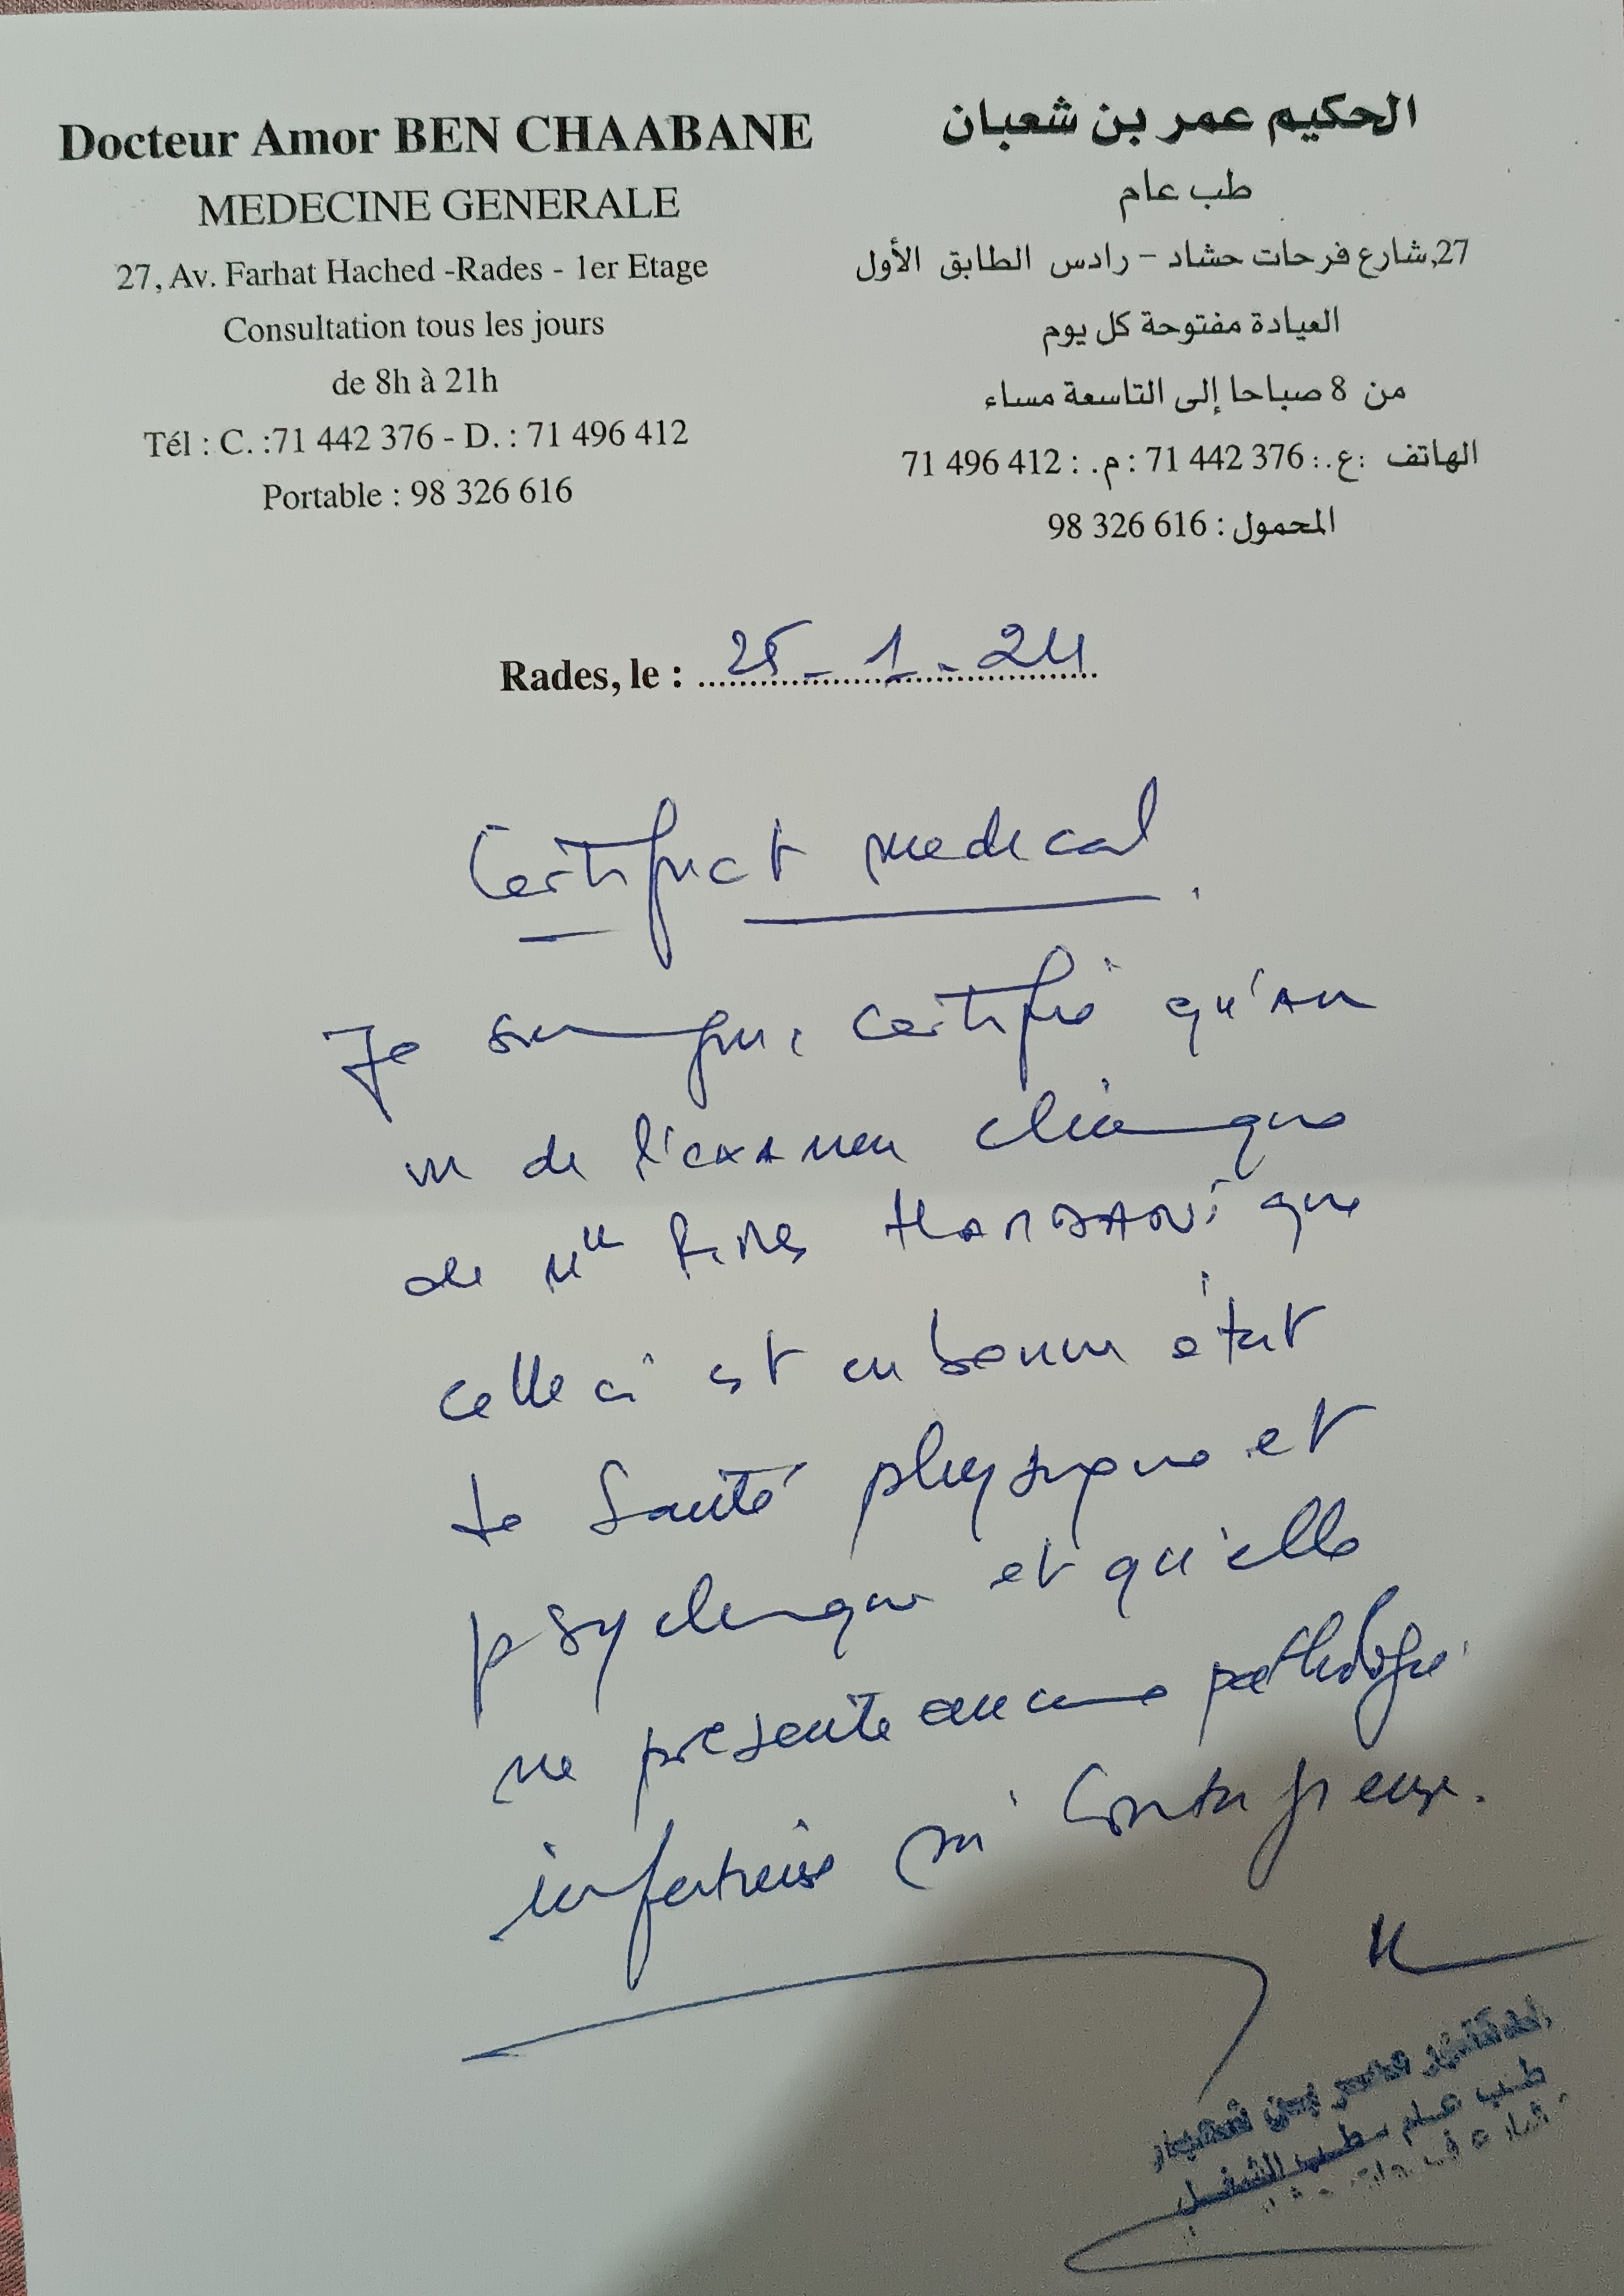 Docteur Amor BEN CHAABANE
MEDECINE GENERALE
27, Av. Farhat Hached -Rades - 1er Etage
Consultation tous les jours
de 8h à 21h
Tél : C. :71 442 376 - D. : 71 496 412
Portable : 98 326 616
الحكيم عمر بن شعبان
طب عام
27,شارع فرحات حشاد – رادس الطابق الأول
العيادة مفتوحة كل يوم
من 8 صباحا إلى التاسعة مساء
الهاتف :ع.: 71 442 376 : م. : 71 496 412
المحمول : 98 326 616
Rades, le : - 1 - 24
Certificat medical
Je certifie qu'au
vu de l'examen clinique
de Mlle que
celle ci est en bonne état
de Santé physique et
psychique et qu'elle
ne presente aucune pathologie
infectieuse ni Contagieuse.
طب عام طب الشغل